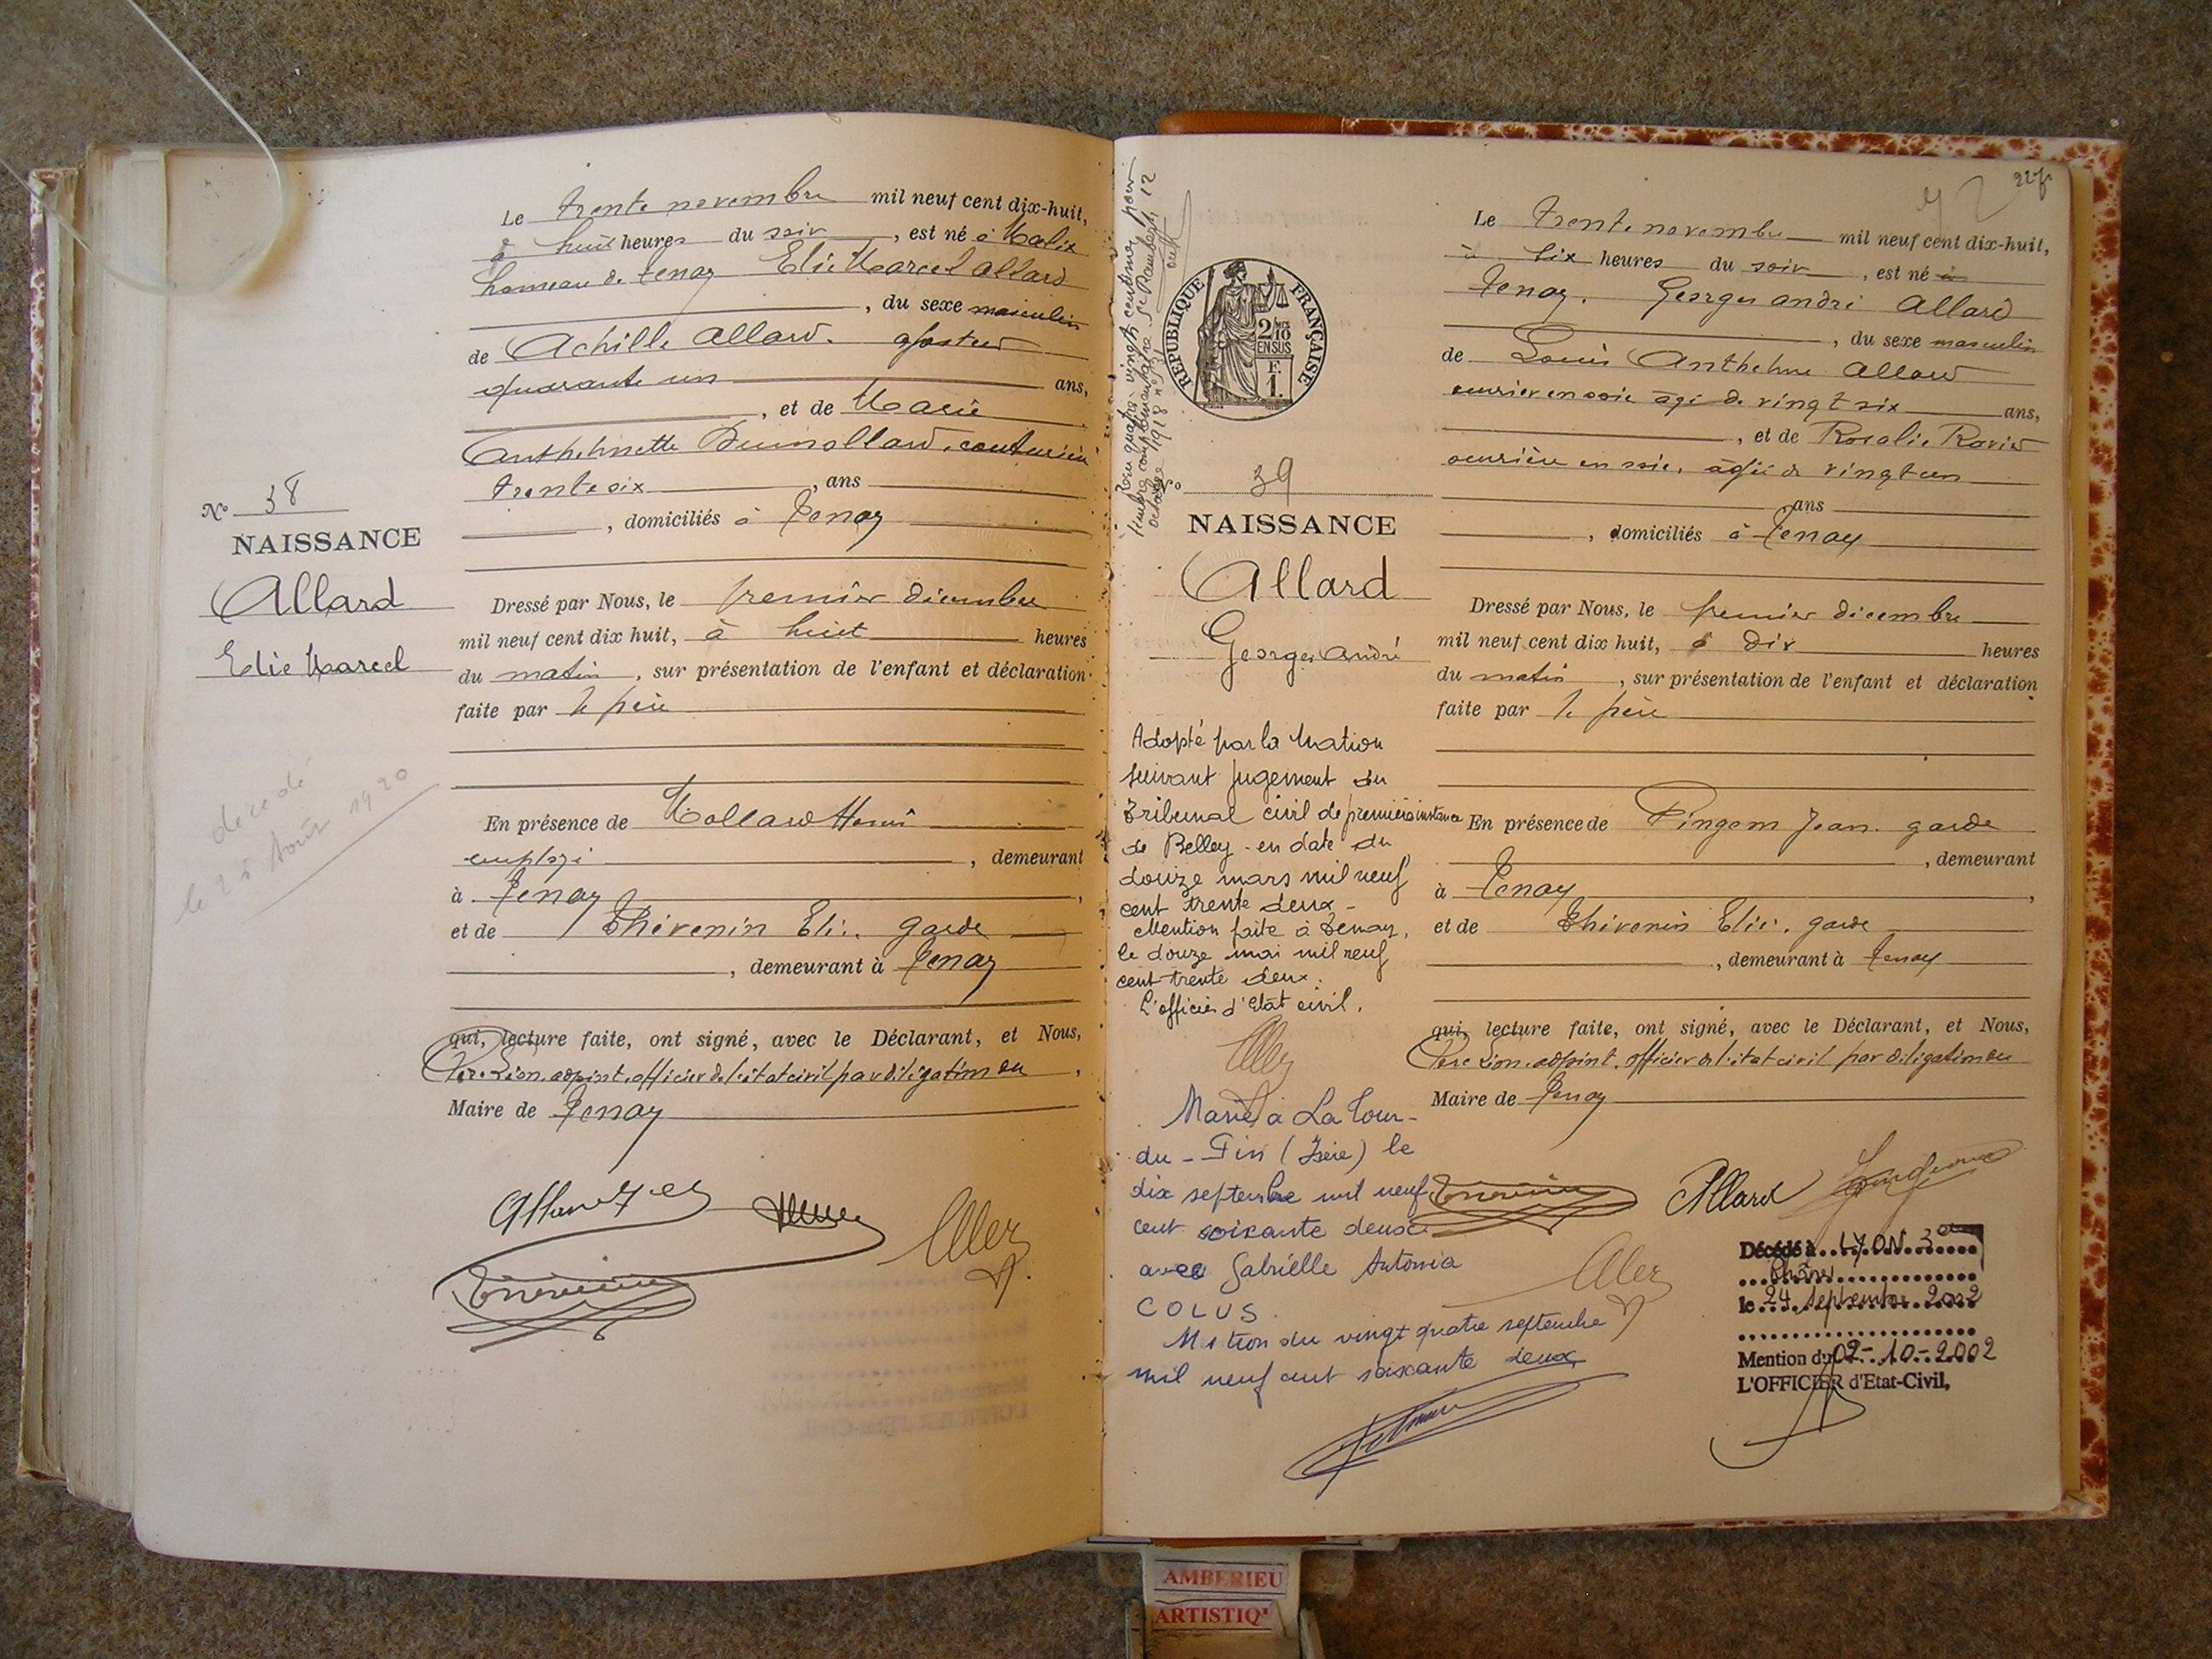 Le trente novembre mil neuf cent dix-huit,
à huit heures du soir, est né à Malix
hameau de Tenay Elie Marcel Allard
, du sexe masculin
de Achille Allard.
quarante un ans,
, et de Marie
Anthelmette Dumollard, couturière
trente six, ans
, domiciliés à Tenay
No 38
NAISSANCE
Allard
Elie Marcel
Dressé par Nous, le premier décembre
mil neuf cent dix huit, à huit heures
du matin, sur présentation de l'enfant et déclaration
faite par le père
décédé
le 25 Août 1920
En présence de Mollard Henri
employé, demeurant
à Tenay,
et de Thévenin Elie. garde
, demeurant à Tenay
qui, lecture faite, ont signé, avec le Déclarant, et Nous,
adjoint, officier de l'état civil par délégation du,
Maire de Tenay
Thévenin
RÉPUBLIQUE FRANÇAISE
2/10mes
EN SUS
F.
1.
No 39
NAISSANCE
Allard
Georges André
Adopté par la Nation
suivant jugement du
Tribunal civil de première instance
de Belley en date du
douze mars mil neuf
cent trente deux -
Mention faite à Tenay,
le douze mai mil neuf
cent trente deux.
L'officier d'Etat civil.
Marié à La Tour-
du-Pin (Isère) le
dix septembre mil neuf
cent soixante deux
avec Gabrielle Antonia
COLUS.
Mention du vingt quatre septembre
mil neuf cent soixante deux
Le trente novembre mil neuf cent dix-huit,
à six heures du soir, est né à
Tenay. Georges André Allard
, du sexe masculin
de Louis Anthelme Allard
ouvrier en soie âgé de vingt six ans,
, et de Rosalie Ravier
ouvrière en soie, âgée de vingt un
ans
, domiciliés à Tenay
Dressé par Nous, le premier décembre
mil neuf cent dix huit, à dix heures
du matin, sur présentation de l'enfant et déclaration
faite par le père
En présence de Pingom Jean. garde
, demeurant
à Tenay,
et de Thévenin Elie. garde
, demeurant à Tenay
qui, lecture faite, ont signé, avec le Déclarant, et Nous,
adjoint, officier de l'état civil par délégation du
Maire de Tenay
Thévenin Allard
Décédé à LYON 3e
Rhône
le 24 Septembre 2002
Mention du 02-10-2002
L'OFFICIER d'Etat-Civil,
AMBERIEU
ARTISTIQ